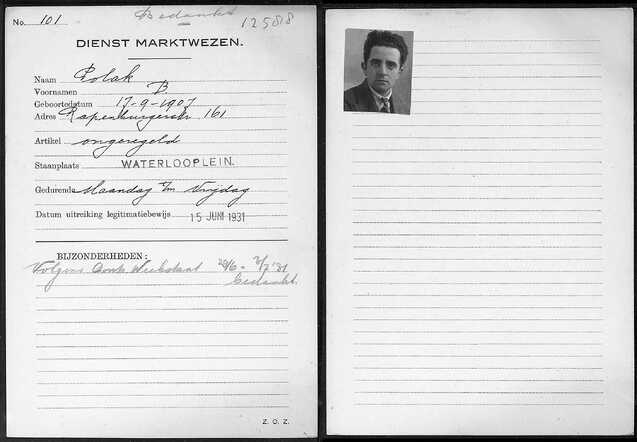 Bedankt
No. 101
12588
DIENST MARKTWEZEN.
Naam Polak
Voornamen B.
Geboortedatum 17-9-1907
Adres Rapenburgerstr 161
Artikel ongeregeld
Staanplaats WATERLOOPLEIN.
Gedurende Maandag t/m Vrijdag
Datum uitreiking legitimatiebewijs 15 JUNI 1931
BIJZONDERHEDEN:
Volgens Contr. Weekstaat 29/6 - 2/7 '31
Bedankt.
Z. O. Z.